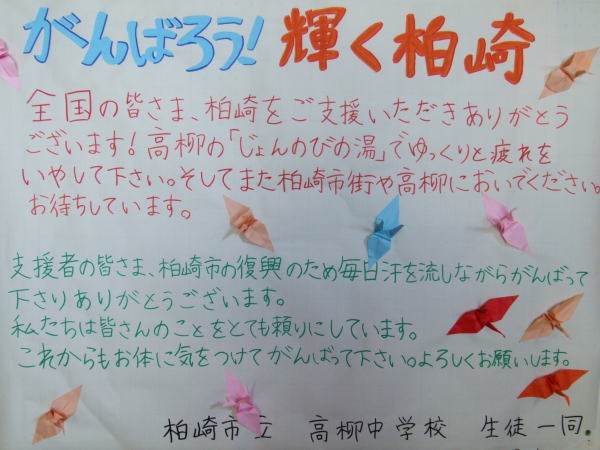 がんばろう！輝く柏崎
全国の皆さま、柏崎をご支援いただきありがとう
ございます！高柳の「じょんのびの湯」でゆっくりと疲れを
いやして下さい。そしてまた柏崎市街や高柳においでください。
お待ちしています。
支援者の皆さま、柏崎市の復興のため毎日汗を流しながらがんばって
下さりありがとうございます。
私たちは皆さんのことをとても頼りにしています。
これからもお体に気をつけてがんばって下さい。よろしくお願いします。
柏崎市立 高柳中学校 生徒一同